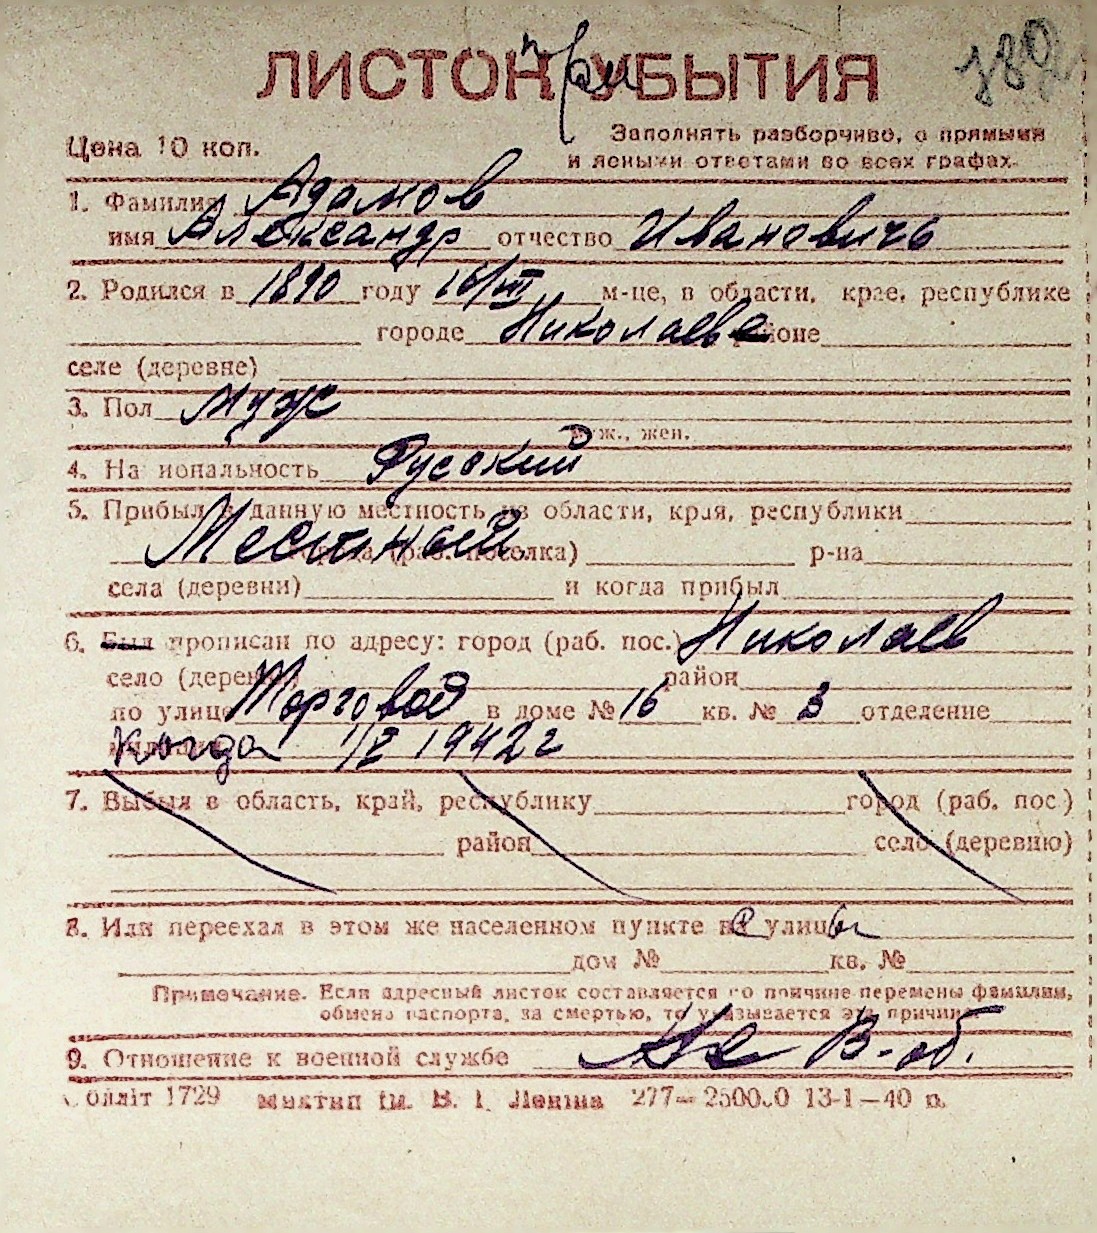 ЛИСТОК УБЫТИЯ
при
Цена 10 коп.
Заполнять разборчиво, с прямыми
и ясными ответами во всех графах.
1. Фамилия Адамов
имя Александр отчество Ивановичь
2. Родился в 1890 году 16/III м-це, в области, крае, республике
городе Николаеве районе
селе (деревне)
3. Пол муж
муж., жен.
4. На иональность Русский
5. Прибыл в данную местность из области, края, республики
Местный города (раб. поселка) р-на
села (деревни) и когда прибыл
6. Был прописан по адресу: город (раб. пос.) Николаев
село (деревня) район
по улице Торговой в доме № 16 кв. № 3 отделение
милиции когда 1/I 1942 г
7. Выбыл в область, край, республику город (раб. пос.)
район село (деревню)
8. Или переехал в этом же населенном пункте с улицы
дом № кв. №
Примечание. Если адресный листок составляется по причине перемены фамилии,
обмена паспорта, за смертью, то указывается эта причина
9. Отношение к военной службе Не В-об.
1729 277— 13-1—40 п.